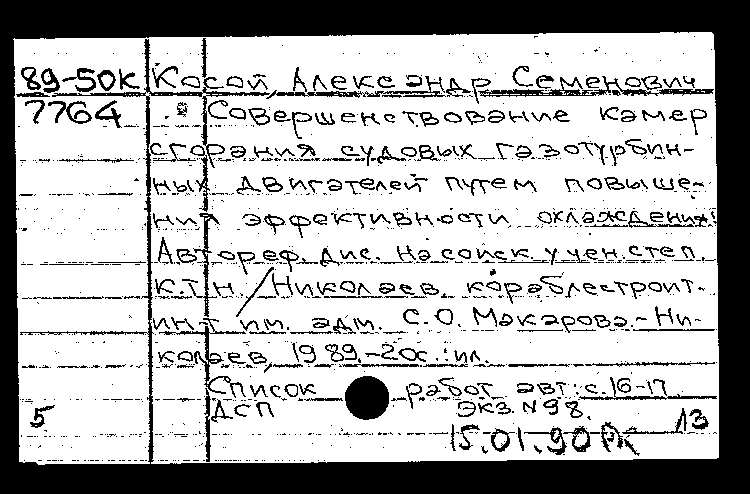 89-50К Косой, Александр Семенович
7764 Совершенствование камер
сгорания судовых газотурбин-
ных двигателей путем повыше-
ния эффективности охлаждения:
Автореф. дис. на соиск. учен. степ.
к.т.н. / Николаев. кораблестроит.
ин-т им. адм. С.О. Макарова. - Ни-
колаев, 1989. - 20с.: ил.
Список работ авт.: с. 16-17
ДСП экз. N 98.
5 15.01.90 13